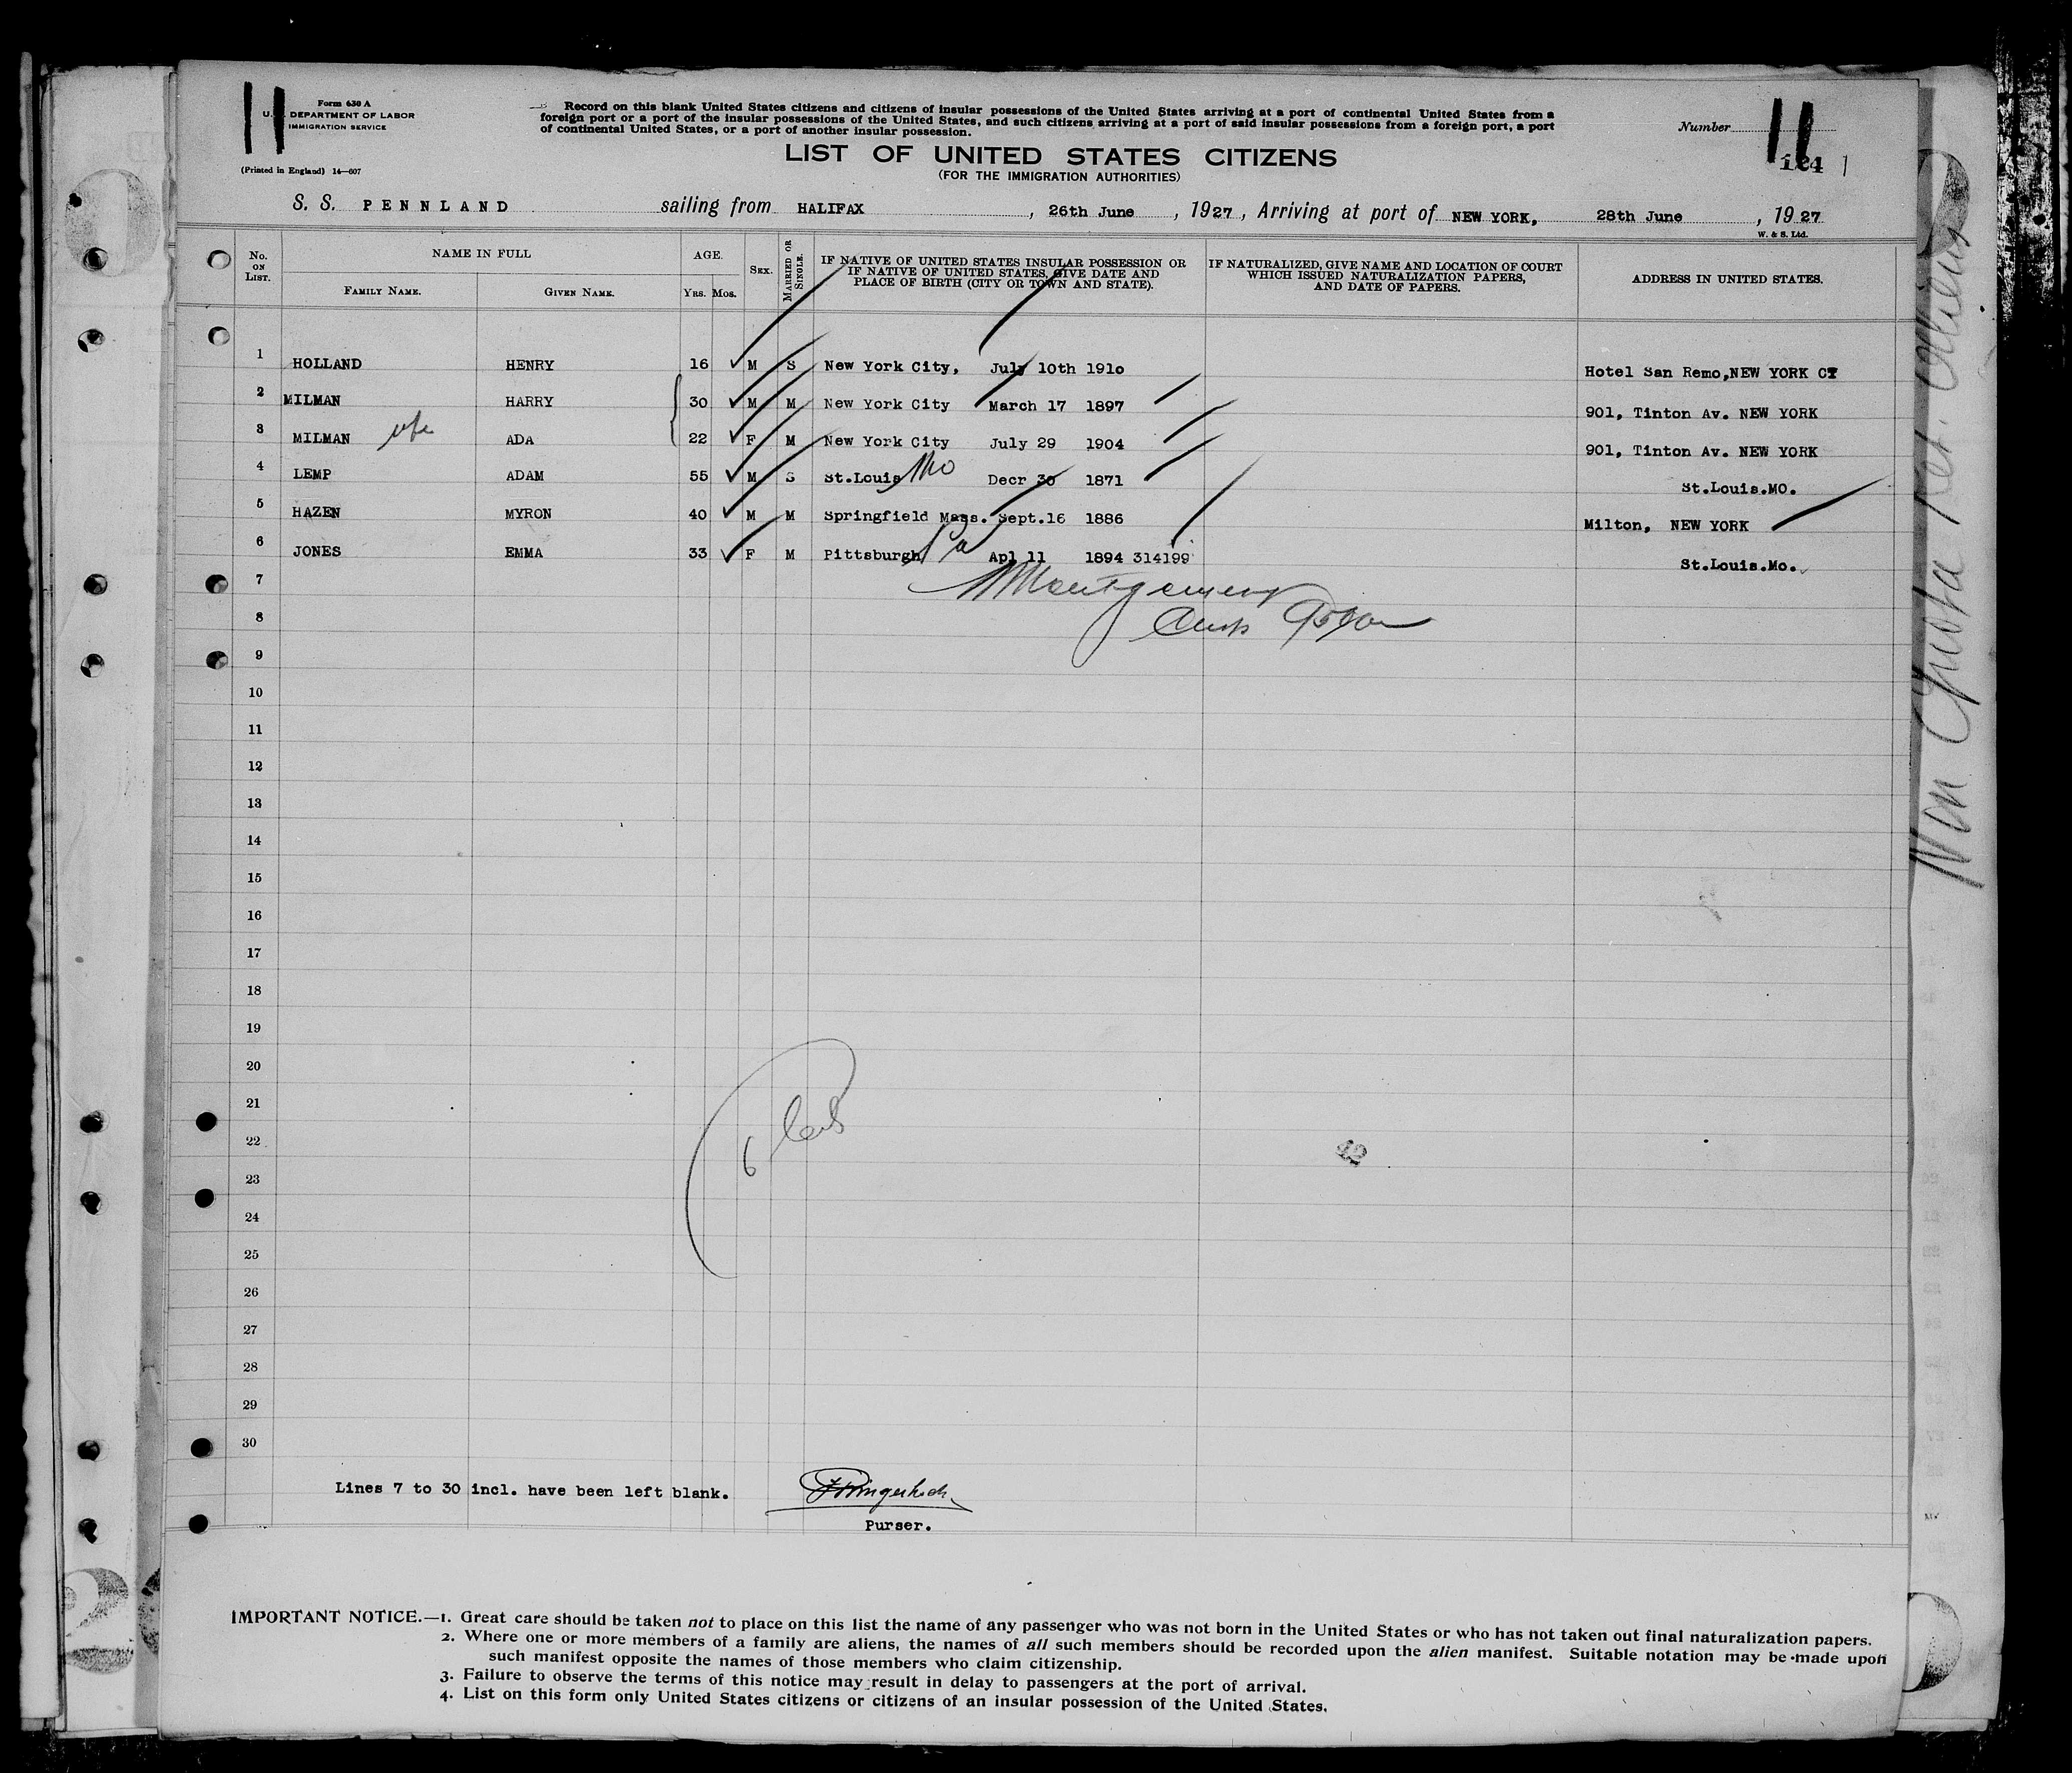 Form 630 A
U. S. DEPARTMENT OF LABOR
IMMIGRATION SERVICE
(Printed in England) 14—607
11
Record on this blank United States citizens and citizens of insular possessions of the United States arriving at a port of continental United States from a
foreign port or a port of the insular possessions of the United States, and such citizens arriving at a port of said insular possessions from a foreign port, a port
of continental United States, or a port of another insular possession.
Number 11
124
LIST OF UNITED STATES CITIZENS
(FOR THE IMMIGRATION AUTHORITIES)
S. S. PENNLAND sailing from HALIFAX, 26th June, 1927, Arriving at port of NEW YORK, 28th June, 1927
W. & S. Ltd.
No. ON LIST. NAME IN FULL AGE. SEX. MARRIED OR SINGLE. IF NATIVE OF UNITED STATES INSULAR POSSESSION OR IF NATIVE OF UNITED STATES, GIVE DATE AND PLACE OF BIRTH (CITY OR TOWN AND STATE). IF NATURALIZED, GIVE NAME AND LOCATION OF COURT WHICH ISSUED NATURALIZATION PAPERS, AND DATE OF PAPERS. ADDRESS IN UNITED STATES.
FAMILY NAME. GIVEN NAME. YRS. MOS.
1 HOLLAND HENRY 16 M S New York City, July 10th 1910 Hotel San Remo, NEW YORK CT
2 MILMAN HARRY 30 M M New York City March 17 1897 901, Tinton Av. NEW YORK
3 MILMAN wfe ADA 22 F M New York City July 29 1904 901, Tinton Av. NEW YORK
4 LEMP ADAM 55 M S St.Louis Mo Decr 30 1871 St.Louis.MO.
5 HAZEN MYRON 40 M M Springfield Mass. Sept.16 1886 Milton, NEW YORK
6 JONES EMMA 33 F M Pittsburgh Pa Apl 11 1894 314199 St.Louis.Mo.
7
8
9
10
11
12
13
14
15
16
17
18
19
20
21
22
23
24
25
26
27
28
29
30
Lines 7 to 30 incl. have been left blank.
Purser.
IMPORTANT NOTICE.—1. Great care should be taken not to place on this list the name of any passenger who was not born in the United States or who has not taken out final naturalization papers.
2. Where one or more members of a family are aliens, the names of all such members should be recorded upon the alien manifest. Suitable notation may be made upon
such manifest opposite the names of those members who claim citizenship.
3. Failure to observe the terms of this notice may result in delay to passengers at the port of arrival.
4. List on this form only United States citizens or citizens of an insular possession of the United States.
Non Quota